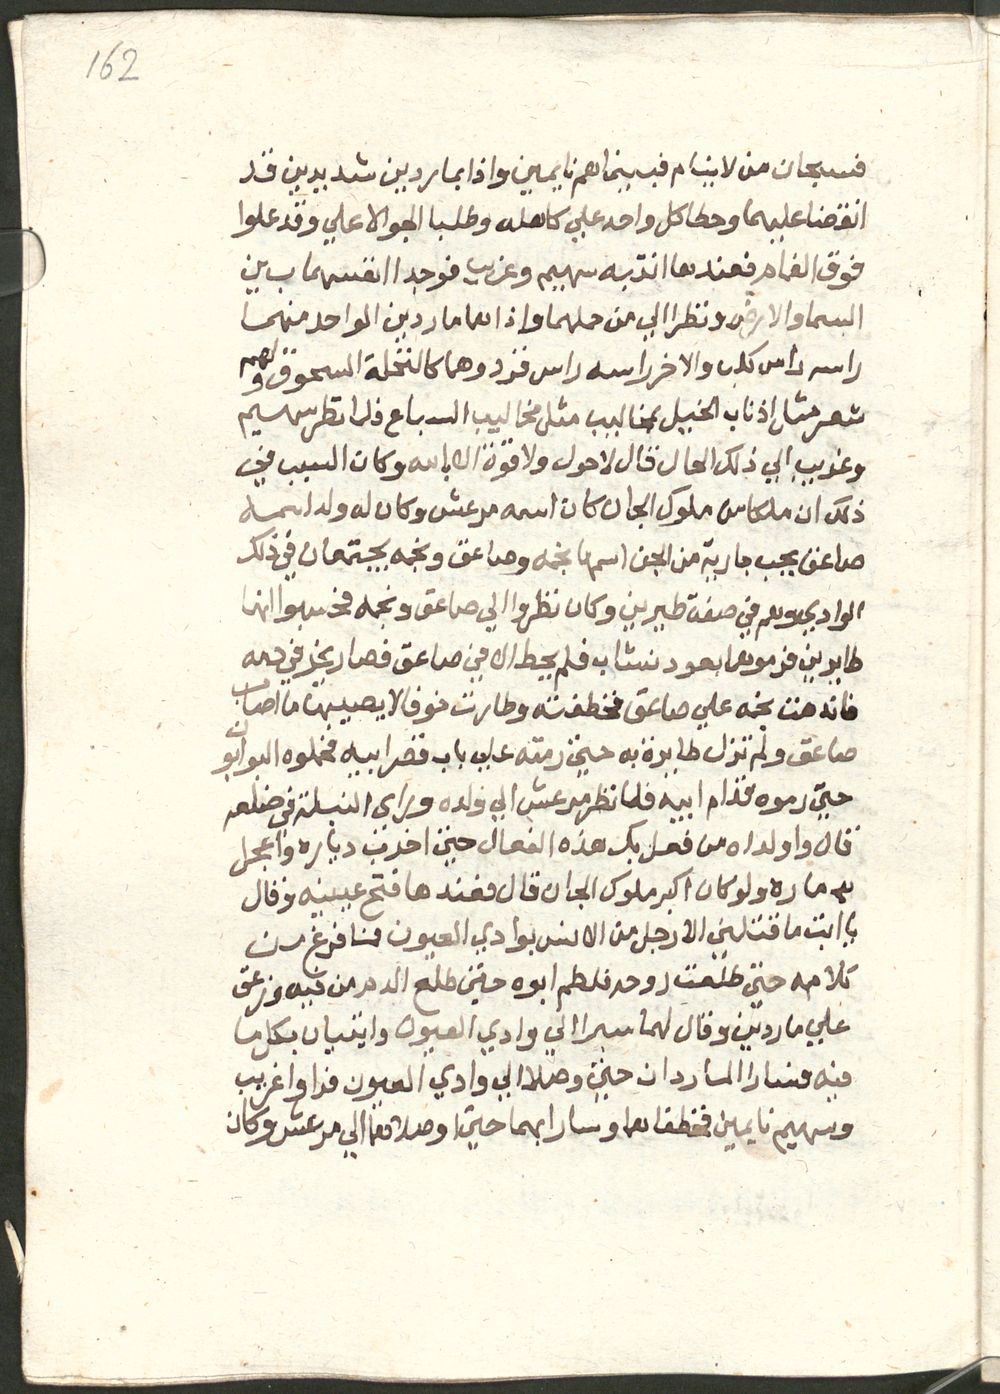 162
فسبحان من لاينام فبينماهم نايمين واذا بماردين شديدين قد
انقضا عليهما وحطا كل واحد علي كاهله وطلبا الجو الاعلي وقد علوا
فوق الغمام فعندها انتبه سهيم وغريب فوجدا انفسهما بين
السما والارض ونظرا الي من حملهما واذا هما ماردين الواحد منهما
راسه راس كلب والاخر راسه راس قرد وهما كالنخلة السحوق ولهم
شعر مثل اذناب الخيل بمخاليب مثل مخاليب السباع فلما نظر سهيم
وغريب الي ذلك الحال قال لاحول ولاقوة الا بالله وكان السبب في
ذلك ان ملكا من ملوك الجان كان اسمه مرعش وكان له ولد اسمه
صاعق يحب جارية من الجن اسمها نجمه وصاعق ونجمه يجتمعان في ذلك
الوادي وهم في صفة طيرين وكان نظروا الي صاعق ونجمه فحسبوا انهما
طايرين فرموهما بعود نشاب فلم يحط الا في صاعق فصار يخر في دمه
فاندهنت نجمه علي صاعق فخطفته وطارت خوفا لايصيبها ما اصاب
صاعق ولم تزل طايرة به حتي رمته علي باب قصر ابيه فحملوه البوابون
حتي رموه قدام ابيه فلما نظر مرعش الي ولده وراي النبلة في ضلعه
قال واولداه من فعل بك هذه الفعال حتي اخرب دياره واعجل
دماره ولو كان اكبر ملوك الجان قال فعندها فتح عينيه وقال
يا ابت ما قتلني الا رجل من الانس بوادي العيون فما فرغ من
كلامه حتي طلعت روحه فلطم ابوه حتي طلع الدم من فيه وزعق
علي ماردين وقال لهما سيرا الي وادي العيون وايتيان بكل ما
فيه فسارا الماردان حتي وصلا الي وادي العيون فراوا غريب
وسهيم نايمين فخطفاهما وسارا بهما حتي اوصلاهما الي مرعش وكان